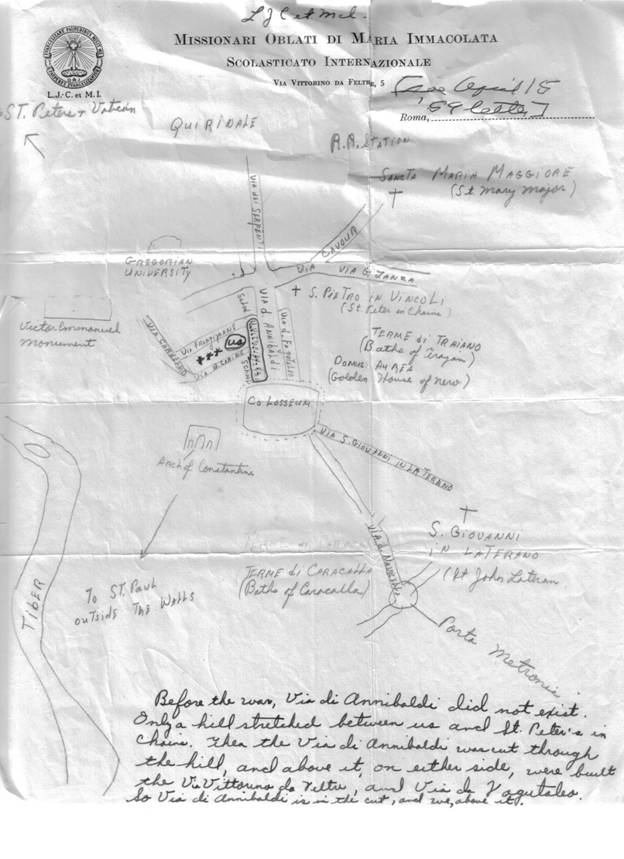 L J C et M I.
MISSIONARI OBLATI DI MARIA IMMACOLATA
SCOLASTICATO INTERNAZIONALE
VIA VITTORINO DA FELTRE, 5
L.J.C. et M.I.
[See April 15
'59 letter]
Roma,
ST. Peters + Vatican
QUIRINALE
R.R. STATION
SANCTA MARIA MAGGIORE
(St Mary Major)
VIA dei SERPENTI
VIA CAVOUR
VIA G. LANZA
GREGORIAN
UNIVERSITY
S. PIETRO IN VINCOLI
(St. Peter in Chains)
VIA d. ANNIBALDI
Victor Emmanuel
Monument
VIA FRANGIPANE
us
TERME di TRAIANO
(Baths of Trajan)
DOMUS AUREA
(Golden House of Nero)
COLOSSEUM
VIA S. GIOVANNI IN LATERANO
Arch of Constantine
S. GIOVANNI
IN LATERANO
(St John Lateran
TERME di CARACALLA
(Baths of Caracalla)
To ST. PAUL
OUTSIDE THE WALLS
TIBER
Porta Metronia
Before the war, Via di Annibaldi did not exist.
Only a hill stretched between us and St. Peter's in
Chains. Then the Via di Annibaldi was cut through
the hill, and above it, on either side, were built
the Via Vittorino da Feltre, and Via de Fagutales.
So Via di Annibaldi is in the cut, and we, above it.